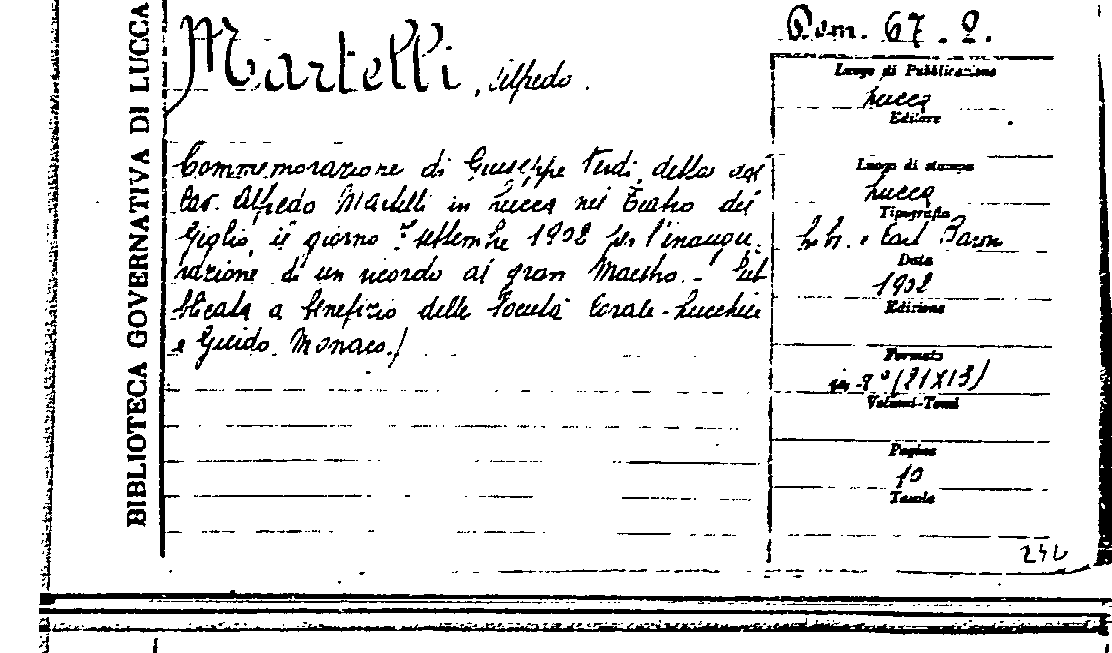 BIBLIOTECA GOVERNATIVA DI LUCCA
Martelli, Alfredo.
Commemorazione di Giuseppe Verdi, detta dal
Cav. Alfredo Martelli in Lucca nel Teatro del
Giglio, il giorno settembre 1902 per l'inaugu-
razione di un ricordo al gran Maestro. - Pub
blicata a benefizio delle Società Corale-Lucchese
e Guido Monaco./
67.2.
Luogo di Pubblicazione
Lucca
Editore
Luogo di stampa
Lucca
Tipografia
Baron
Data
1902
Edizione
Formato
in-8° (21X13)
Volumi-Tomi
Pagine
10
Tavole